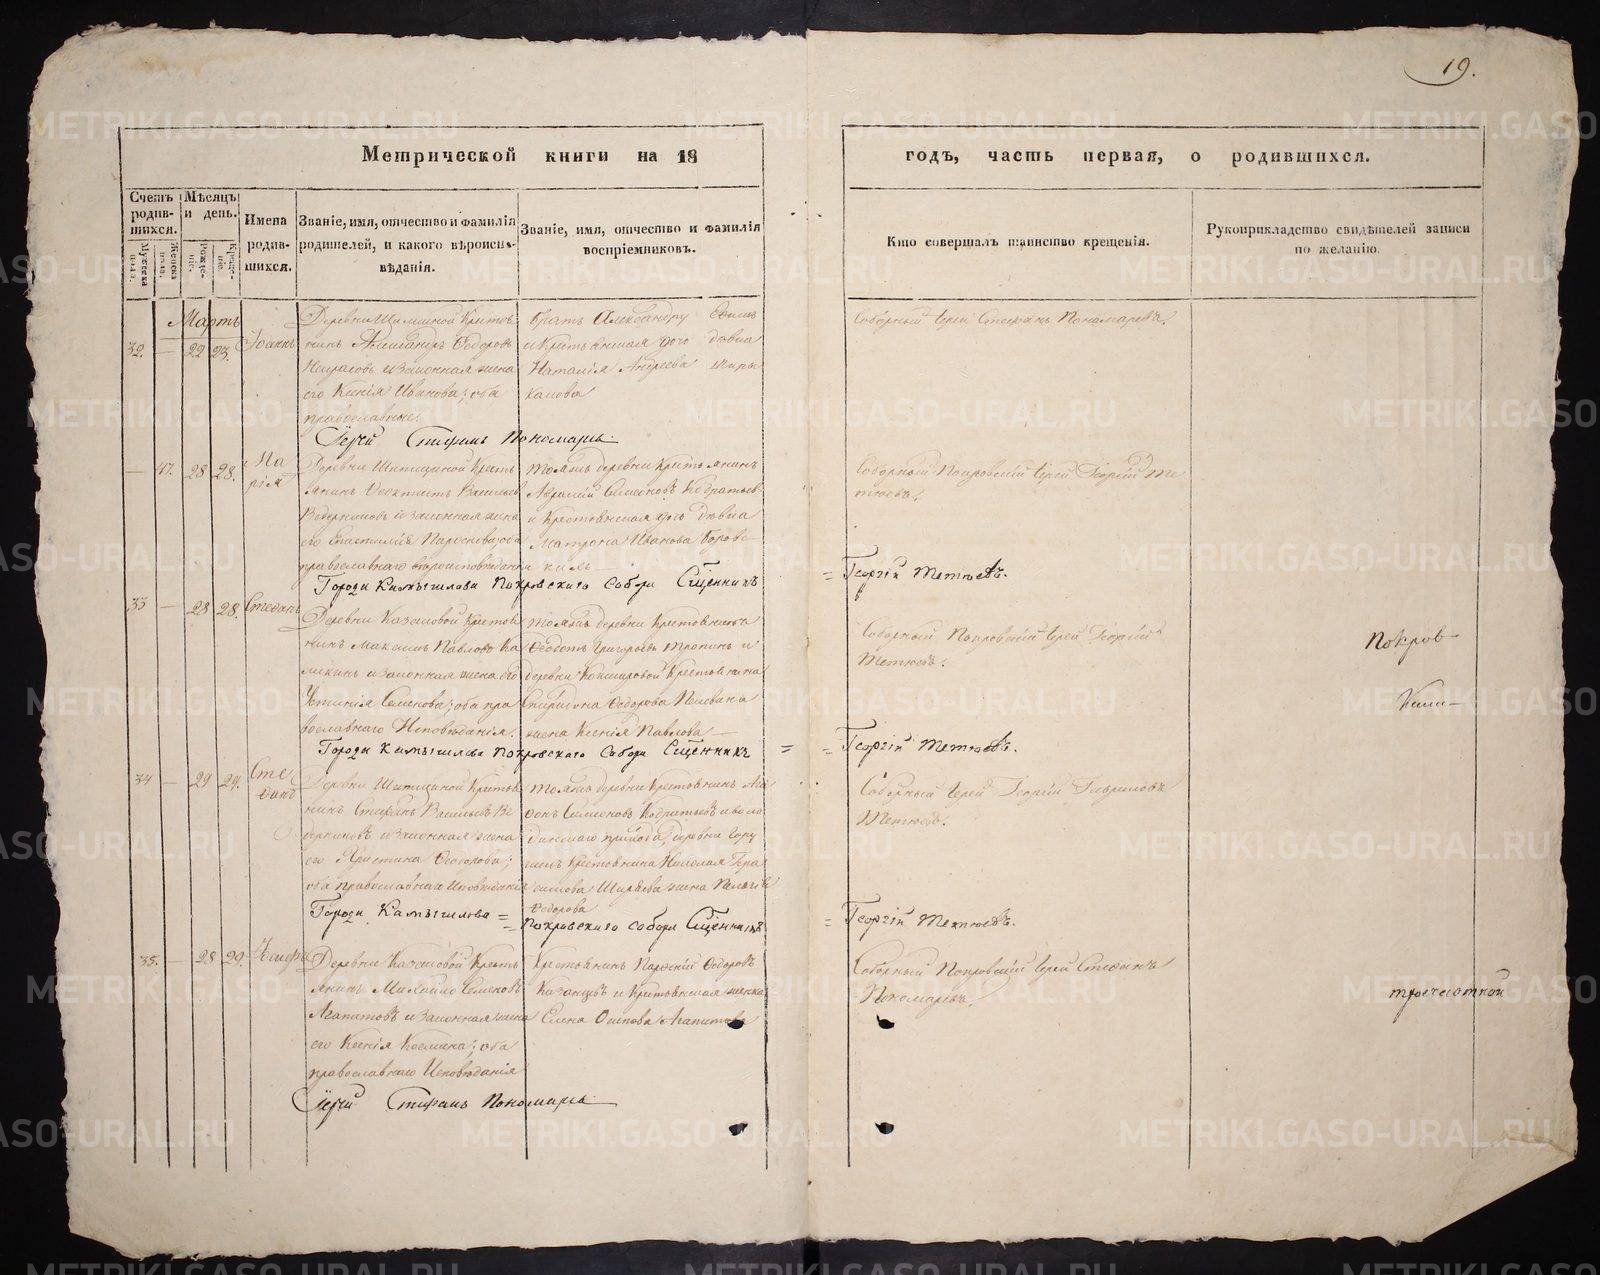 19.
Метрической книги на 18
годъ, часть первая, о родившихся.
Счетъ родив-шихся.
Мужеска пола.
Женска пола.
Мѣсяцъ и день.
Рожде-нія.
Креще-нія.
Имена родив-шихся.
Званіе, имя, отчество и фамилія родителей, и какого вѣроиспо-вѣданія.
Званіе, имя, отчество и фамилія воспріемниковъ.
Кто совершалъ таинство крещенія.
Рукоприкладство свидѣтелей записи по желанію.
Мартъ
32. — 22 23. Іоаннъ
Деревни крестья
нинъ Ѳедоровъ
Некрасовъ и законная жена
его Ксенія Иванова; оба
православные.
братъ Александръ
и крестьянская дочь дѣвка
Наталія Андреева Ширы
калова
Соборный Іерей Стефанъ Пономаревъ.
Іерей Стефанъ Пономаревъ
— 47. 28 28. Ма
рія
Деревни Шипициной кресть
янинъ Ѳеоктистъ Васильевъ
Ведерниковъ и законная жена
его оба
православнаго вѣроисповѣданія
тояжъ деревни крестьянинъ
Симеоновъ Кодратьевъ
и крестьянская дочь дѣвка
Матрона Иванова
Соборный Покровскій Іерей Георгій Те
тюевъ.
Города Камышлова Покровскаго Собора Сщенникъ
= Георгій Тетюевъ.
33 — 28 28. Стефанъ
Деревни Казаковой крестья
нинъ Максимъ Павловъ Ка
и законная жена его
Устинія Семенова; оба пра
вославнаго Исповѣданія.
тояжъ деревни крестьянина
Ѳедотъ Григорьевъ и
деревни крестьянина
Спиридона Ѳедорова
жена Ксенія Павлова
Соборный Покровскій Іерей Георгій
Тетюевъ.
Покров
Ками
Города Камышлова Покровскаго Собора Сщенникъ =
= Георгій Тетюевъ.
34 — 29 29. Сте
фанъ
Деревни Шипициной крестья
нинъ Стефанъ Васильевъ Ве
дерниковъ и законная жена
его Христина Ѳедорова;
оба православнаго Исповѣданія
тояжъ деревни крестьянинъ
Симеоновъ Кодратьевъ и
прихода, деревни
крестьянина Николая Гера
симова Ширяева жена Пелагія
Ѳедорова
Соборный Іерей Георгій Гавриловъ
Тетюевъ.
Города Камышлова =
= Покровскаго собора Сщенникъ
= Георгій Тетюевъ.
35. — 28 29.
Деревни Казаковой кресть
янинъ Михайло Семеновъ
Агапитовъ и законная жена
его Ксенія Космина; оба
православнаго Исповѣданія
Крестьянинъ Ѳедоровъ
Казанцевъ и крестьянская женка
Елена Осипова Агапитова
Соборный Покровскій Іерей Стефанъ
Пономаревъ.
Іерей Стефанъ Пономаревъ
METRIKI.GASO-URAL.RU